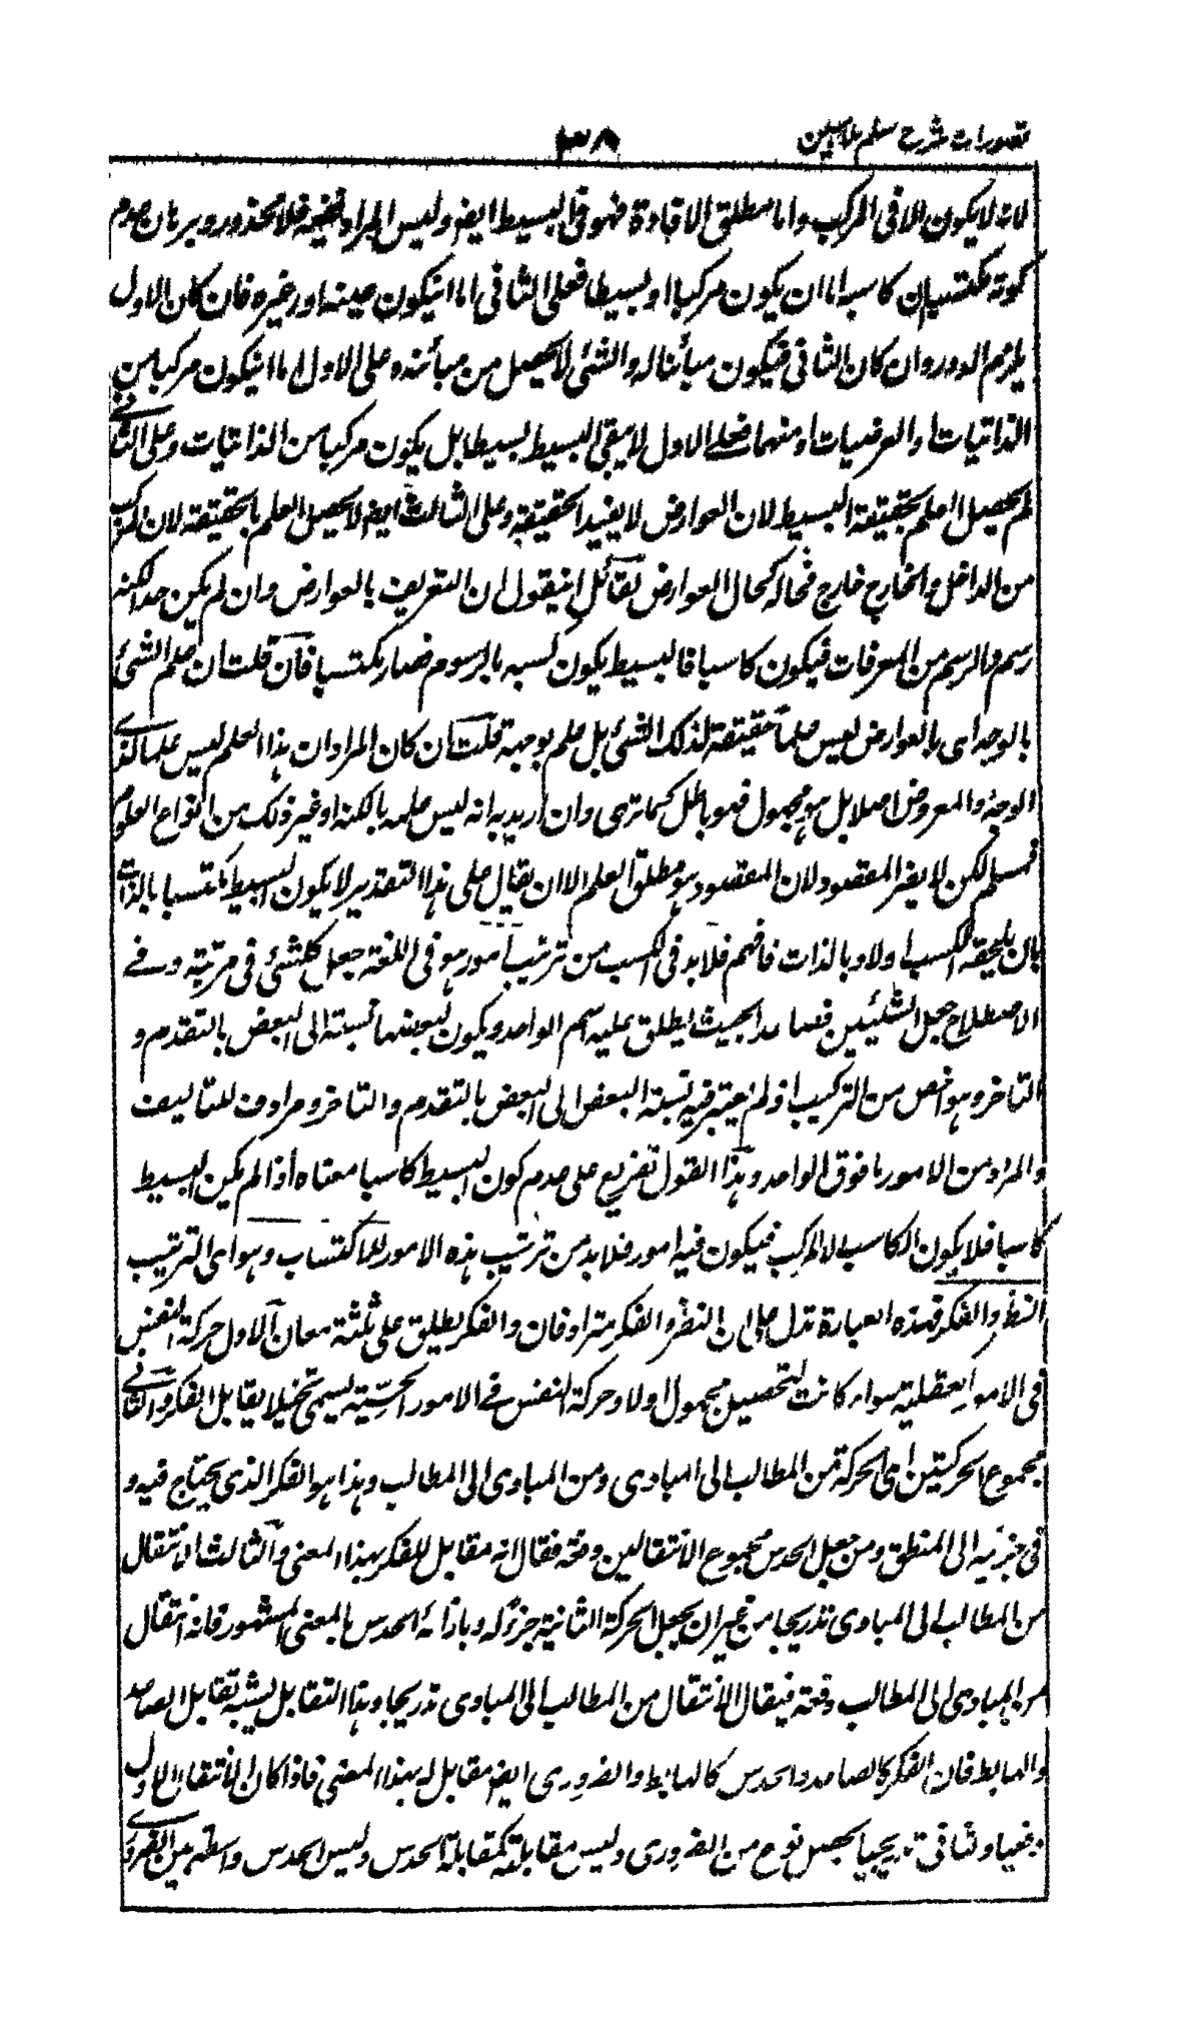 تصورات شرح سلم ملامبین
٣٨
لانه لا يكون الا فى المركب واما مطلق الافادة فهو فى البسيط ايضا وليس المراد نفيه فلا محذور وبرهان عدم
كونه مكتسبا ان كاسبه اما ان يكون مركبا او بسيطا فعلى الثانى اما انيكون عينه اور غيره فان كان الاول
يلزم الدور وان كان الثانى فيكون مبائنا له والشئ لا يحصل من مبائنه وعلى الاول اما انيكون مركبا من
الذاتيات او العرضيات او منهما فعلے الاول لا يبقى البسيط بسيطا بل يكون مركبا من الذاتيات وعلى الثانے
لم يحصل العلم بحقيقة البسيط لان العوارض لا يفيد الحقيقة وعلى الثالث ايضا لا يحصل العلم بالحقيقة لان المركب
من الداخل والخارج خارج فحاله كحال العوارض لقائل انيقول ان التعريف بالعوارض وان لم يكن حدا لكنه
رسم والرسم من المعرفات فيكون كاسبا فالبسيط يكون كسبه بالرسوم فصار مكتسبا فان قلت ان علم الشئ
بالوجه اى بالعوارض ليس علما حقيقة لذلك الشئ بل علم بوجهه قلت ان كان المراد ان هذا العلم ليس علما لذے
الوجه والمعروض اصلا بل هو مجهول فهو باطل كما ترى وان اريد به انه ليس علمه بالكنه او غير ذلك من انواع العلوم
فمسلم لكن لا يضر المقصود لان المقصود هو مطلق العلم الا ان يقال على هذا التقدير لا يكون البسيط مكتسبا بالذات
بان يلحقه الكسب اولا وبالذات فافهم فلا بد فى الكسب من ترتيب امور هو فى اللغة جعل كلشئ فى مرتبته وفے
الاصطلاح جعل الشئيين فصاعدا بحيث يطلق عليه اسم الواحد ويكون لبعضها نسبة الى البعض بالتقدم و
التاخر وهو اخص من التركيب اذ لم يعتبر فيه نسبة البعض الى البعض بالتقدم والتاخر ومرادف للتاليف
والمراد من الامور ما فوق الواحد وهذا القول تفريع على عدم كون البسيط كاسبا معناه اذا لم يكن البسيط
كاسبا فلا يكون الكاسب الا المركب فيكون فيه امور فلا بد من ترتيب هذه الامور للاكتساب وهو اى الترتيب
النظر والفكر فهذه العبارة تدل على ان النظر والفكر مترادفان والفكر يطلق على ثلثة معان الاول حركة النفس
فى الامور العقلية سواء كانت لتحصيل مجهول اولا وحركة النفس فے الامور الحسية يسمى تخيلا يقابل الفكر والثانے
مجموع الحركتين اى الحركة من المطالب الى المبادى ومن المبادى الى المطالب وهذا هو الفكر الذى يحتاج فيه و
فى جزئيه الى المنطق ومن جعل الحدس مجموع الانتقالين دفعة فقال انه مقابل للفكر بهذا المعنى والثالث الانتقال
من المطالب الى المبادى تدريجا من غير ان يجعل الحركة الثانية جزؤ له وبازائه الحدس بالمعنى المشهور فانه انتقال
من المبادى الى المطالب دفعة فيقال الانتقال من المطالب الى المبادى تدريجا وهذا التقابل يشبه تقابل الصاعد
والهابط فان الفكر كالصاعد والحدس كالهابط والضرورى ايضا مقابل له بهذا المعنى فاذا كان الانتقال الاول
دفعيا وثانى تدريجيا يحصل نوع من الضرورى وليس مقابلته كمقابلة الحدس وليس الحدس واسطة بين الضرورے